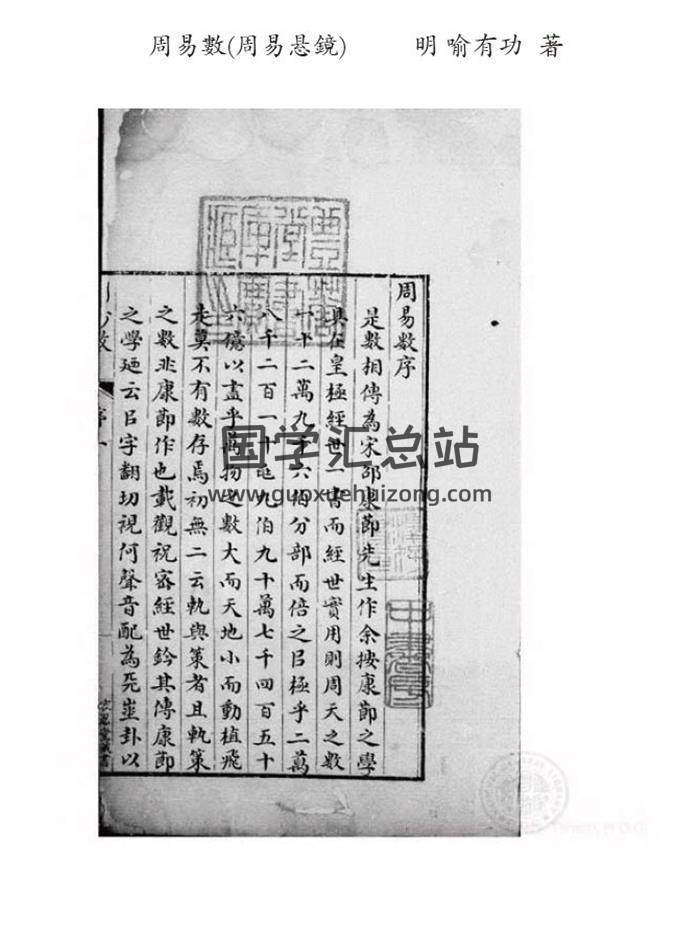 周易數(周易悬鏡) 明 喻有功 著
周易數序
是數相傳為宋邵康節先生作余按康節之學
在皇極經世一書而經世實用則周天之數
二萬九千六伯分部而倍之㠯極乎二萬
八千二百一十九伯九十萬七千四百五十
六億以盡乎萬物之數大而天地小而動植飛
走莫不有數存焉初無二云軌與策者且軌策
之數非康節作也觀祝經世鈐其傳康節
之學廼云㠯字翻切視何聲音配為卦以
序一
国学汇总站
www.guoxuehuizong.com